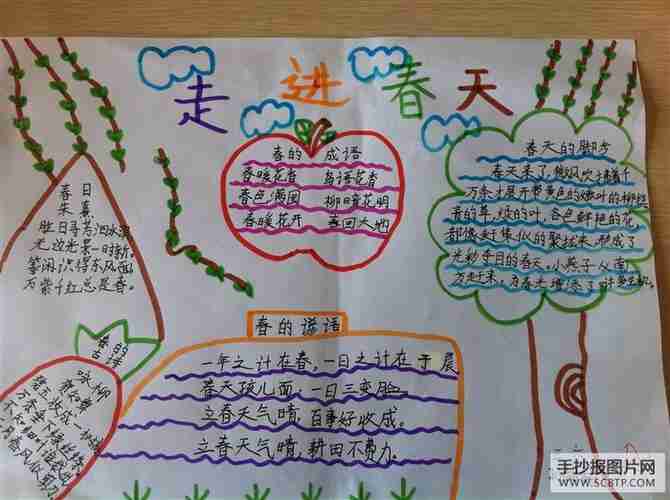 走进春天
春日
朱熹
胜日寻芳泗水滨
无边光景一时新。
等闲识得东风面
万紫千红总是春。
春的成语
春暖花香 鸟语花香
春色满园 柳暗花明
春暖花开 春回大地
春天的脚步
春天来了,微风吹拂着千
万条才展开带黄色的嫩叶的柳丝
青的草,绿的叶,各色鲜艳的花,
都像赶集似的聚拢来,形成了
光彩夺目的春天。小燕子从南
方赶来,为春光增添了许多生机。
春的
古诗
咏柳
春的谚语
一年之计在春,一日之计在于晨
春天孩儿面,一日三变脸。
立春天气晴,百事好收成。
立春天气晴,耕田不费力。
手抄报图片网
WWW.SCBTP.COM